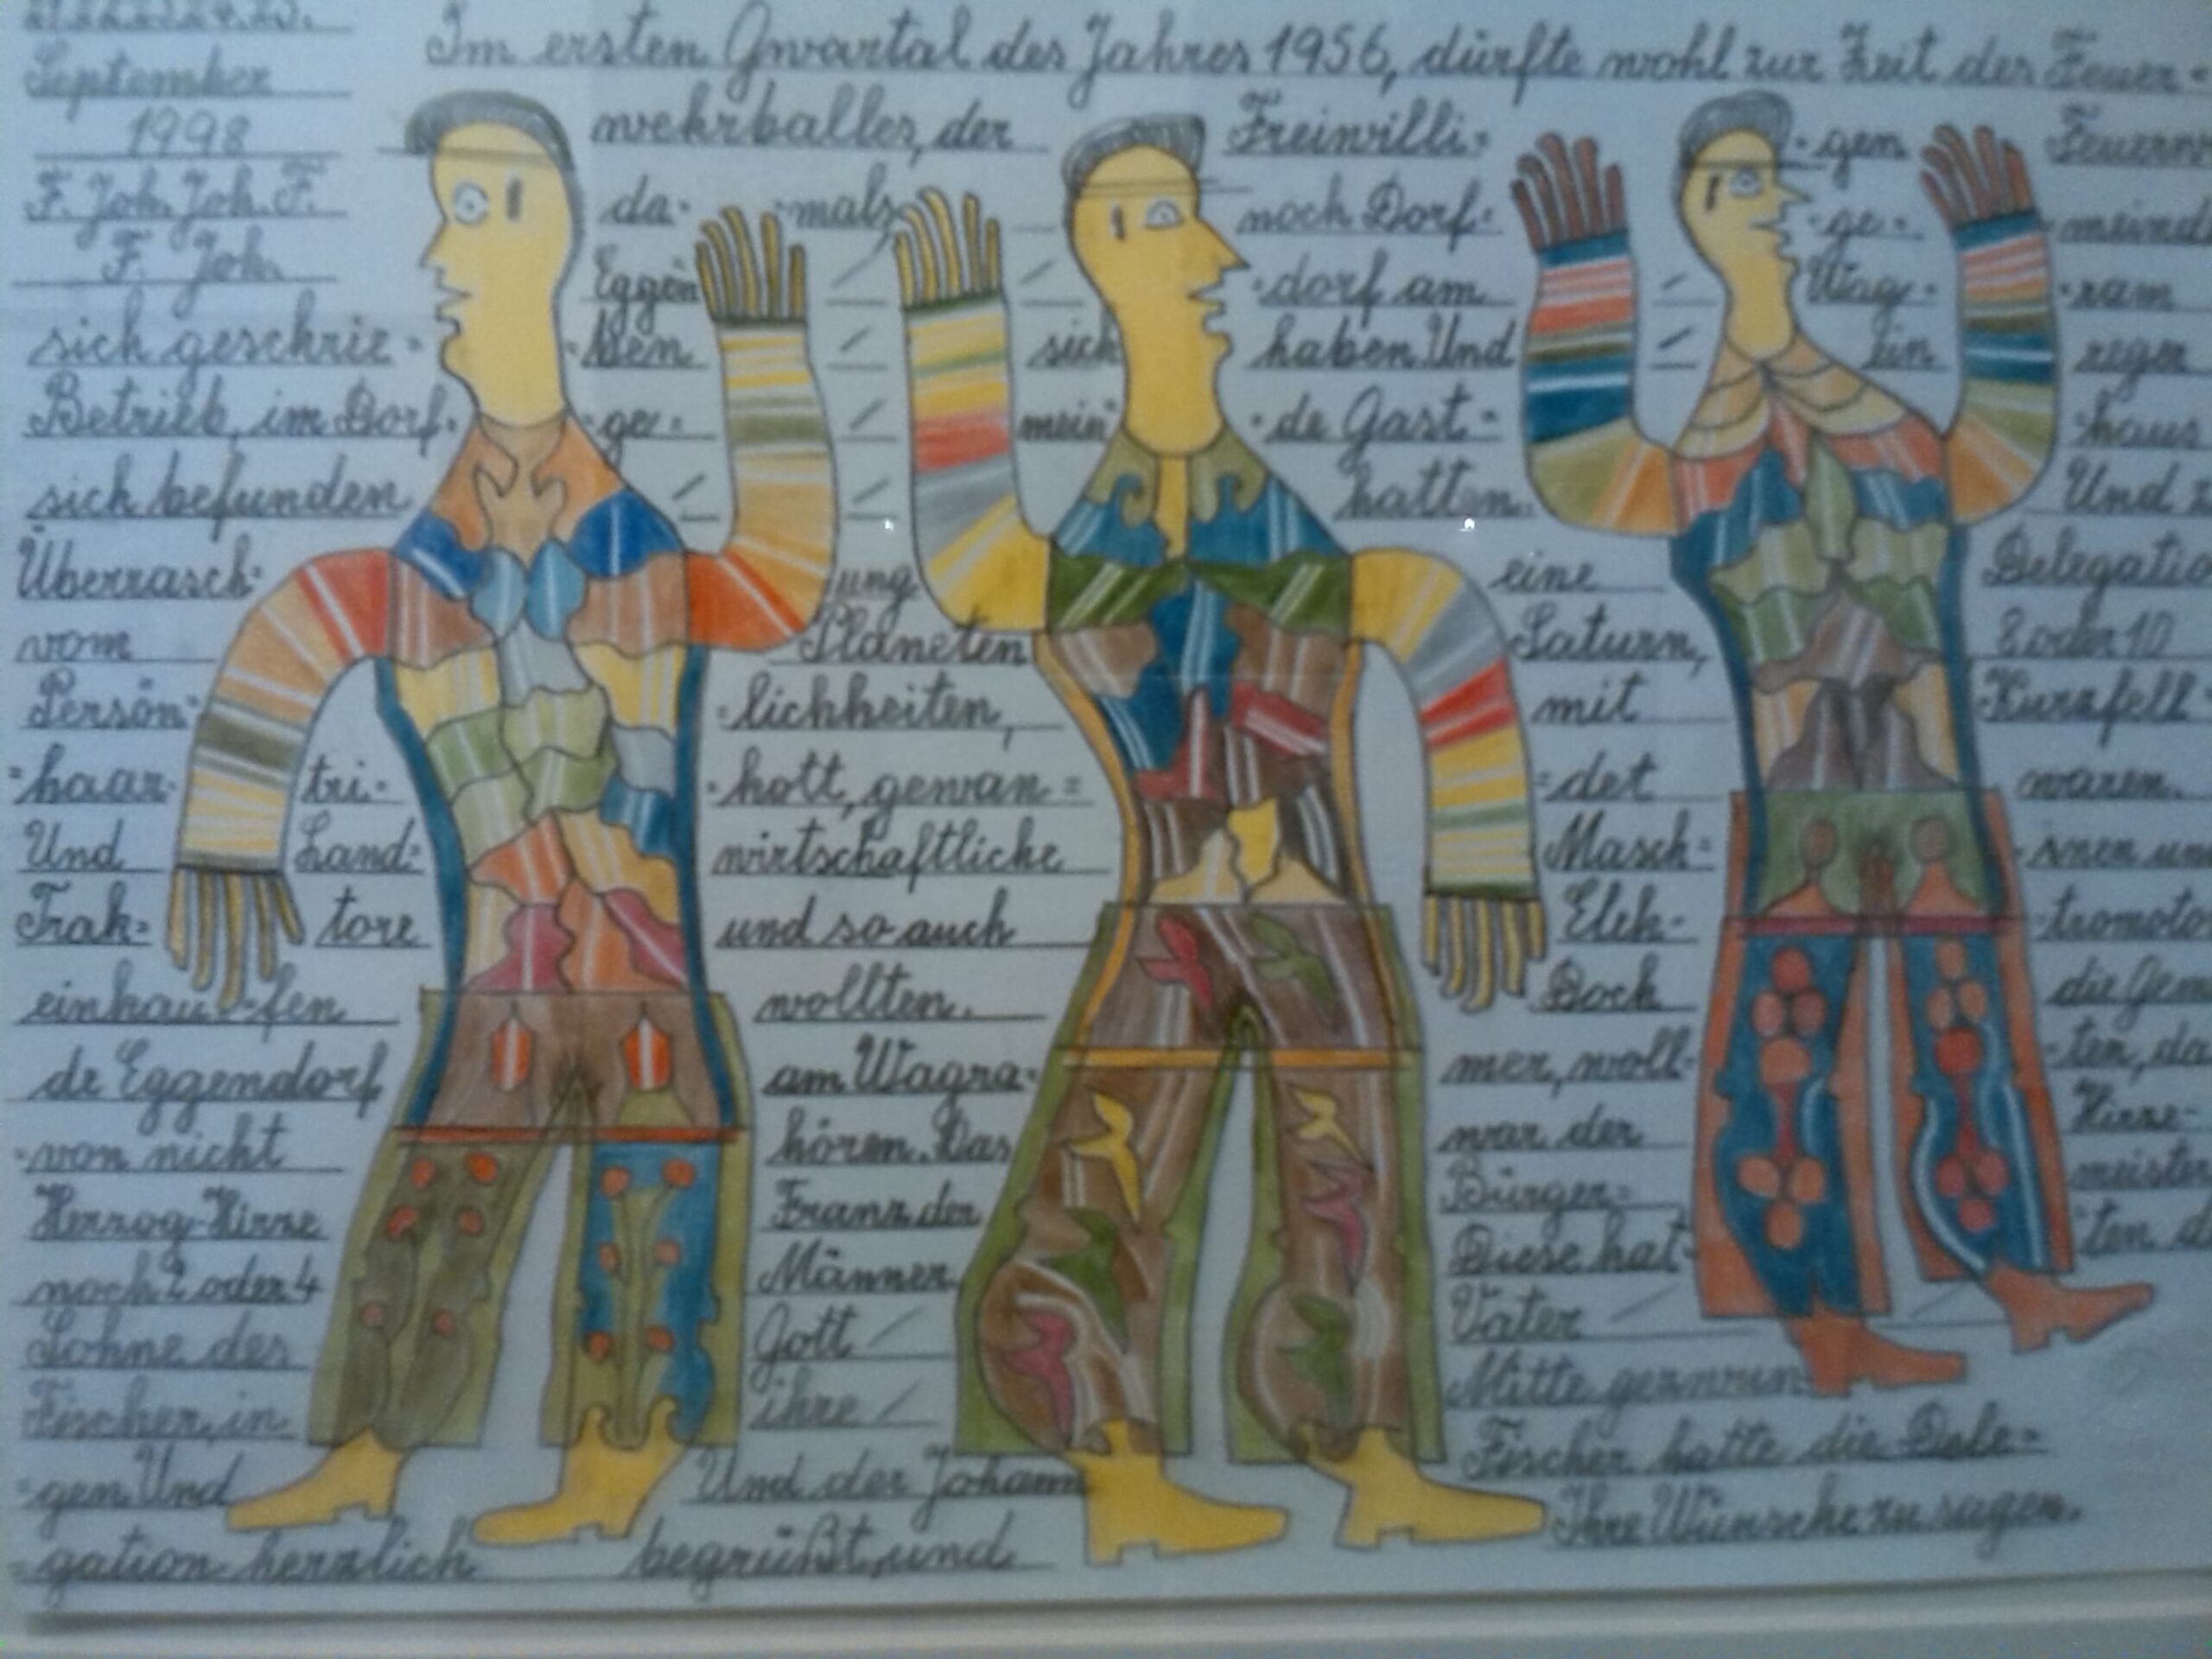 21.22.23.24.25.
September
1998
F. Joh. Joh. F.
F. Joh.
Im ersten Gwartal des Jahres 1956, dürfte wohl zur Zeit des Feuer-
wehrballes, der Freiwilli- -gen Feuerw
da- -mals noch Dorf- -ge- -meind
Eggen -dorf am Wag- -ram
sich geschrie- -ben sich haben Und ein reger
Betrieb, im Dorf- -ge- mein -de Gast- -haus
sich befunden hatten. Und z
Überrasch- ung eine Delegatio
vom Planeten Saturn, 8 oder 10
Persön- -lichkeiten, mit Kurzfell-
-haar- tri- -kott, gewan- -det waren.
Und Land- wirtschaftliche Masch- -inen un
Trak- tore und so auch Elek- -tromoto
einkau- -fen wollten. Doch die Gem
de Eggendorf am Wagra- mer, woll- -ten, da
-von nicht hören. Das war der Hirze-
Herzog-Hirze Franz der Bürger- meister
noch 2 oder 4 Männer Diese hat- ten d
Sohne des Gott Vater
Fischer, in ihre Mitte genwun
-gen Und Und der Johann Fischer hatte die Dele-
-gation herzlich begrüßt, und Ihre Wünsche zu sagen.